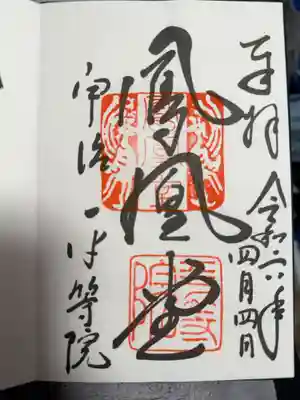 奉拝 令和六年四月四日
鳳凰堂
宇治 平等院